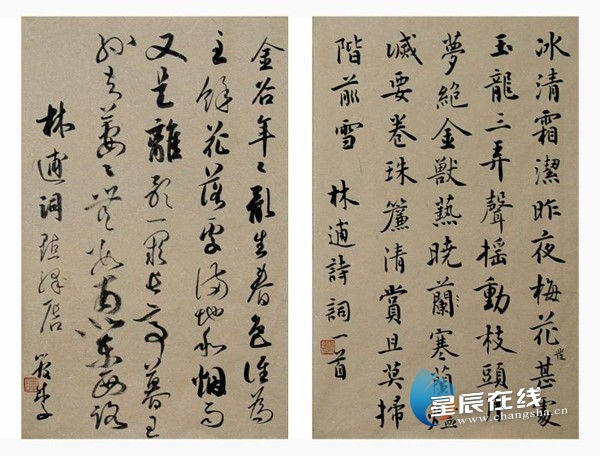 冰清霜潔昨夜梅花甚處發
玉龍三弄聲搖動枝頭
夢絕金獸爇曉蘭寒蘭燼
滅要卷珠簾清賞且莫掃
階前雪 林逋詩詞一首
金谷年〻亂生春色誰為
主餘花落處滿地和烟雨
又是離歌一闋長亭暮王
孫去萋〻無數南北東西路
林逋詞點絳唇
星辰在线
www.changsha.cn